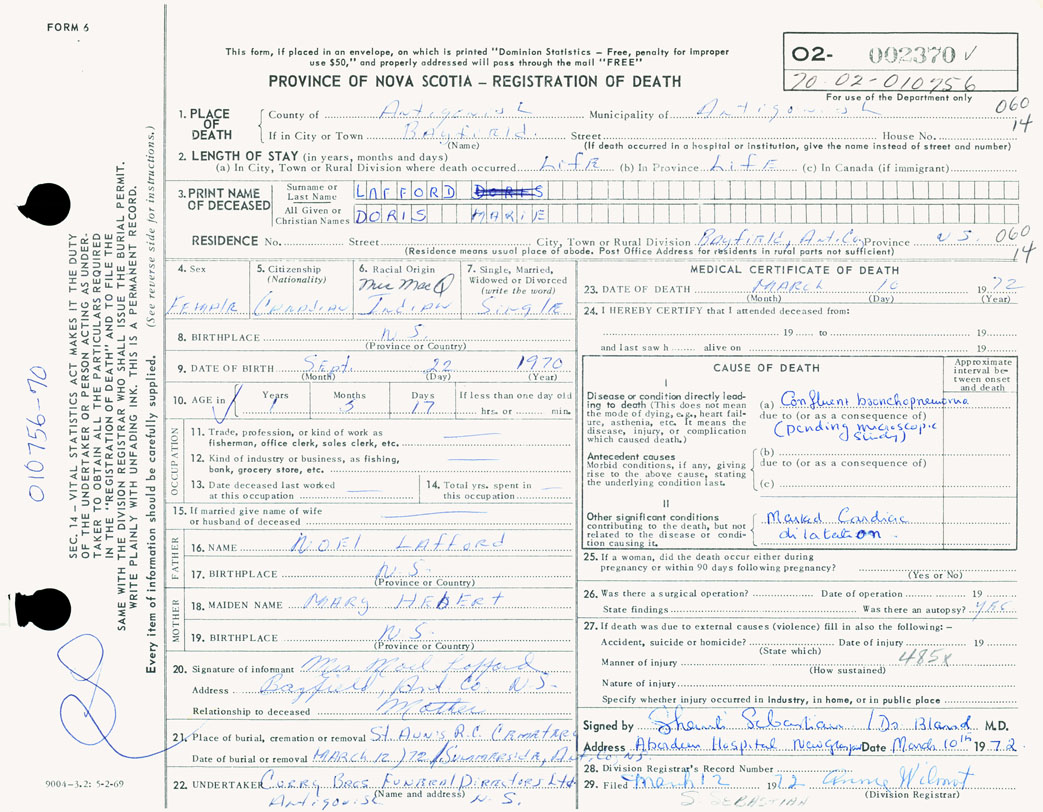 FORM 6
This form, if placed in an envelope, on which is printed "Dominion Statistics – Free, penalty for improper
use $50," and properly addressed will pass through the mail "FREE"
PROVINCE OF NOVA SCOTIA – REGISTRATION OF DEATH
02- 002370 √
70-02-010756
For use of the Department only
060
14
1. PLACE OF DEATH County of Antigonish Municipality of Antigonish
If in City or Town Bayfield. Street House No.
(Name) (If death occurred in a hospital or institution, give the name instead of street and number)
2. LENGTH OF STAY (in years, months and days)
(a) In City, Town or Rural Division where death occurred Life (b) In Province Life (c) In Canada (if immigrant)
3. PRINT NAME OF DECEASED
Surname or Last Name LAFFORD DORIS
All Given or Christian Names DORIS MARIE
RESIDENCE No. Street City, Town or Rural Division Bayfield, Ant. Co Province N.S. 060
(Residence means usual place of abode. Post Office Address for residents in rural parts not sufficient) 14
4. Sex
Female
5. Citizenship
(Nationality)
Canadian
6. Racial Origin
Mic Mac
Indian
7. Single, Married,
Widowed or Divorced
(write the word)
Single
8. BIRTHPLACE N.S.
(Province or Country)
9. DATE OF BIRTH Sept. 22 1970
(Month) (Day) (Year)
10. AGE in Years Months Days If less than one day old
1 17 hrs. or min.
OCCUPATION
11. Trade, profession, or kind of work as
fisherman, office clerk, sales clerk, etc.
12. Kind of industry or business, as fishing,
bank, grocery store, etc.
13. Date deceased last worked
at this occupation
14. Total yrs. spent in
this occupation
15. If married give name of wife
or husband of deceased
FATHER
16. NAME Noel Lafford
17. BIRTHPLACE N.S.
(Province or Country)
MOTHER
18. MAIDEN NAME MARY HEBERT
19. BIRTHPLACE N.S.
(Province or Country)
20. Signature of informant Mrs Noel Lafford
Address Bayfield, Ant Co. N.S.
Relationship to deceased Mother
21. Place of burial, cremation or removal St. Ann's R.C. Cemetery
Date of burial or removal MARCH 12/72 Summerside, Ant, Co, NS.
22. UNDERTAKER Curry Bros Funeral Directors Ltd
(Name and address)
Antigonish N.S.
MEDICAL CERTIFICATE OF DEATH
23. DATE OF DEATH MARCH 10 1972
(Month) (Day) (Year)
24. I HEREBY CERTIFY that I attended deceased from:
19 to 19
and last saw h alive on 19
CAUSE OF DEATH
Approximate
interval be-
tween onset
and death
I
Disease or condition directly lead-
ing to death (This does not mean
the mode of dying, e.g., heart fail-
ure, asthenia, etc. It means the
disease, injury, or complication
which caused death.)
(a) Confluent bronchopneumonia
due to (or as a consequence of)
(pending microscopic
study)
Antecedent causes
Morbid conditions, if any, giving
rise to the above cause, stating
the underlying condition last.
(b)
due to (or as a consequence of)
(c)
II
Other significant conditions
contributing to the death, but not
related to the disease or condi-
tion causing it.
Marked Cardiac
dilatation.
25. If a woman, did the death occur either during
pregnancy or within 90 days following pregnancy?
(Yes or No)
26. Was there a surgical operation? Date of operation 19
State findings Was there an autopsy? yes
27. If death was due to external causes (violence) fill in also the following: –
Accident, suicide or homicide? Date of injury 19
(State which)
Manner of injury 485x
(How sustained)
Nature of injury
Specify whether injury occurred in industry, in home, or in public place
Signed by Sebastian / Dr. Bland M.D.
Address Aberdeen Hospital New Glasgow Date March 10th 1972.
28. Division Registrar's Record Number
29. Filed March 12 1972 Anne Wilmot
(Division Registrar)
S. SEBASTIAN
SEC. 14 – VITAL STATISTICS ACT MAKES IT THE DUTY
OF THE UNDERTAKER OR PERSON ACTING AS UNDER-
TAKER TO OBTAIN ALL THE PARTICULARS REQUIRED
IN THE "REGISTRATION OF DEATH" AND TO FILE THE
SAME WITH THE DIVISION REGISTRAR WHO SHALL ISSUE THE BURIAL PERMIT.
WRITE PLAINLY WITH UNFADING INK. THIS IS A PERMANENT RECORD.
Every item of information should be carefully supplied. (See reverse side for instructions.)
010756-70
9004-3.2: 5-2-69